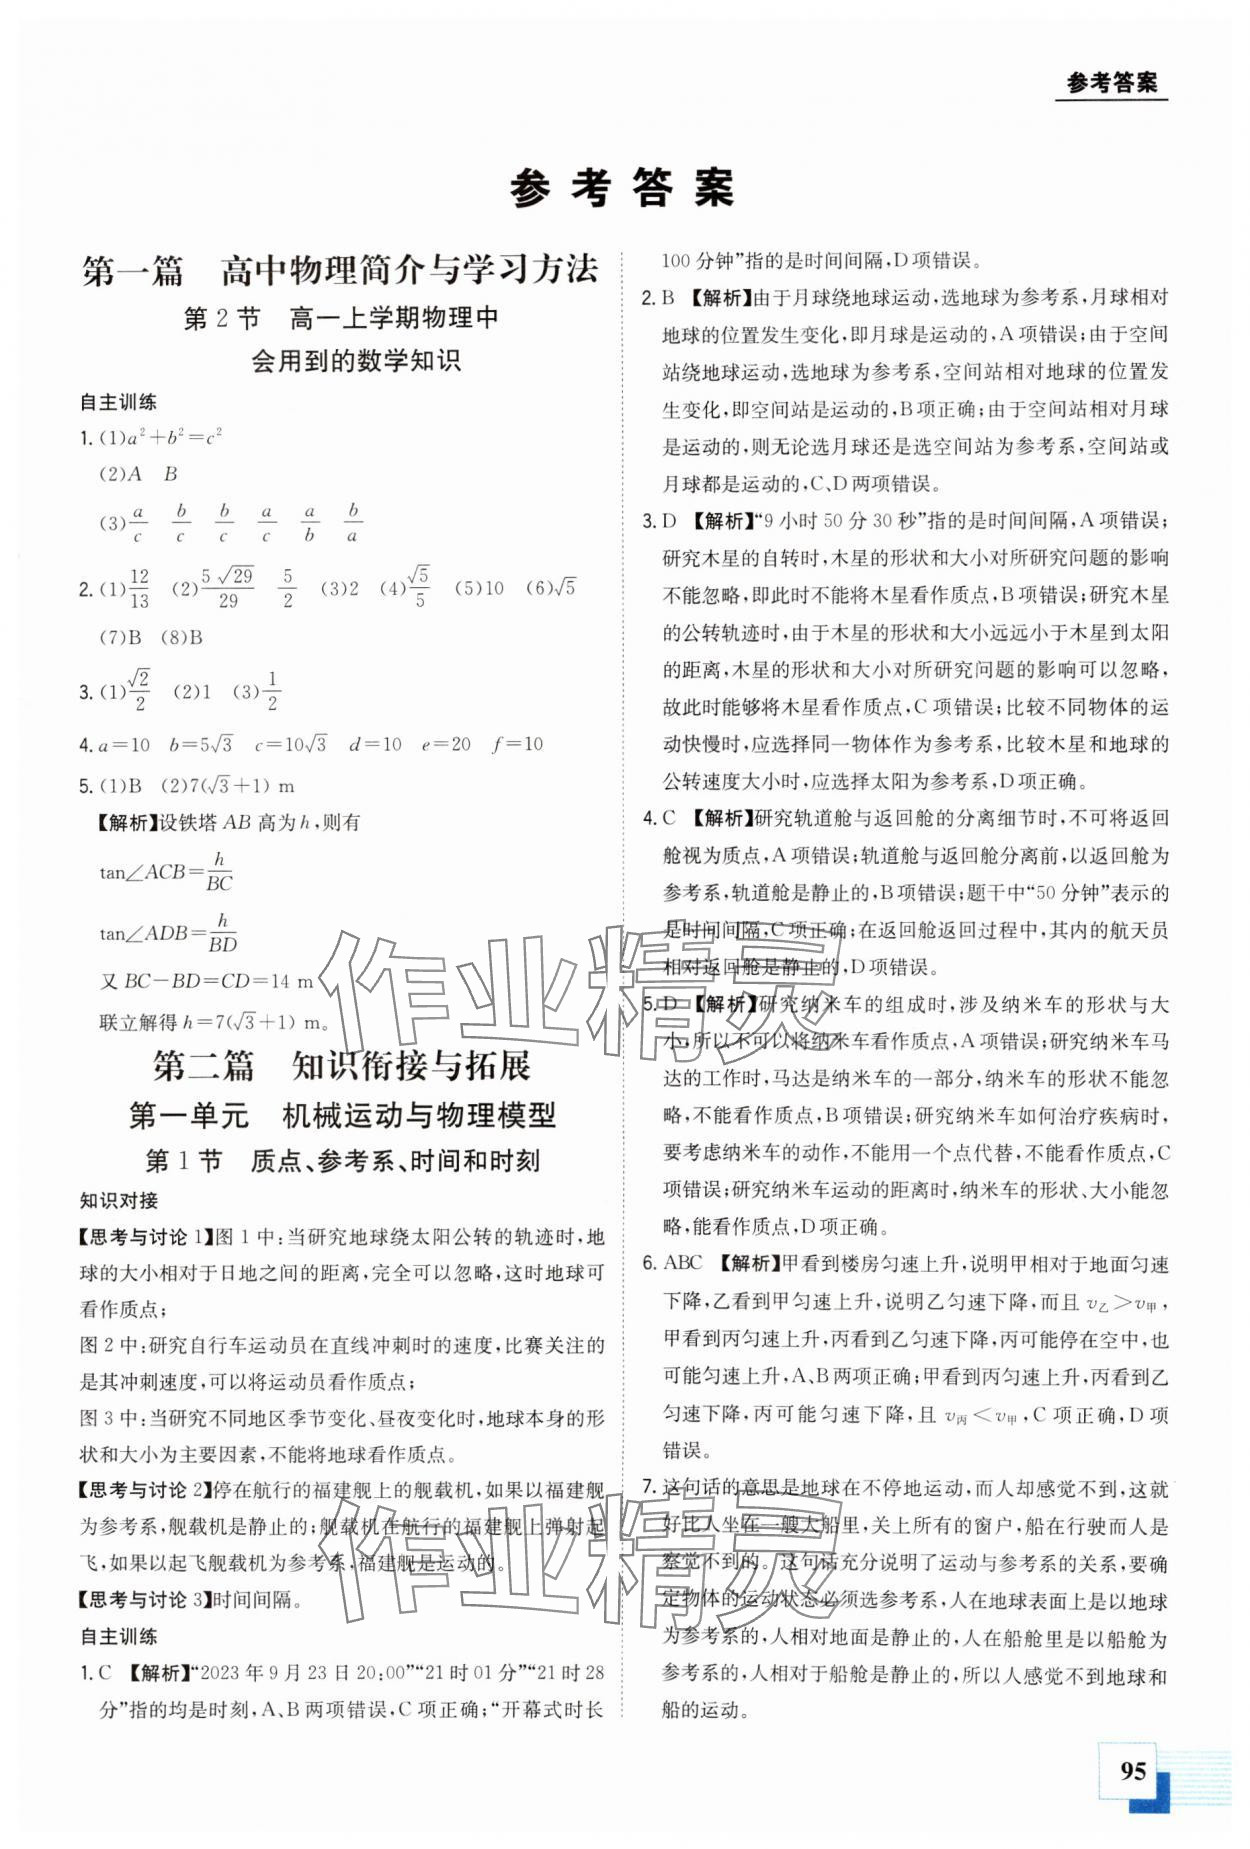 参考答案
参考答案
第一篇 高中物理简介与学习方法
第2节 高一上学期物理中
会用到的数学知识
自主训练
1. (1)a²+b²=c²
(2)A B
(3)a/c b/c b/c a/c a/b b/a
2. (1)12/13 (2)5√29/29 5/2 (3)2 (4)√5/5 (5)10 (6)√5
(7)B (8)B
3. (1)√2/2 (2)1 (3)1/2
4. a=10 b=5√3 c=10√3 d=10 e=20 f=10
5. (1)B (2)7(√3+1) m
【解析】设铁塔 AB 高为 h,则有
tan∠ACB=h/BC
tan∠ADB=h/BD
又 BC-BD=CD=14 m
联立解得 h=7(√3+1) m。
第二篇 知识衔接与拓展
第一单元 机械运动与物理模型
第1节 质点、参考系、时间和时刻
知识对接
【思考与讨论1】图1中:当研究地球绕太阳公转的轨迹时,地
球的大小相对于日地之间的距离,完全可以忽略,这时地球可
看作质点;
图2中:研究自行车运动员在直线冲刺时的速度,比赛关注的
是其冲刺速度,可以将运动员看作质点;
图3中:当研究不同地区季节变化、昼夜变化时,地球本身的形
状和大小为主要因素,不能将地球看作质点。
【思考与讨论2】停在航行的福建舰上的舰载机,如果以福建舰
为参考系,舰载机是静止的;舰载机在航行的福建舰上弹射起
飞,如果以起飞舰载机为参考系,福建舰是运动的。
【思考与讨论3】时间间隔。
自主训练
1. C 【解析】“2023年9月23日20:00”“21时01分”“21时28
分”指的均是时刻,A、B两项错误,C项正确;“开幕式时长
100分钟”指的是时间间隔,D项错误。
2. B 【解析】由于月球绕地球运动,选地球为参考系,月球相对
地球的位置发生变化,即月球是运动的,A项错误;由于空间
站绕地球运动,选地球为参考系,空间站相对地球的位置发
生变化,即空间站是运动的,B项正确;由于空间站相对月球
是运动的,则无论选月球还是选空间站为参考系,空间站或
月球都是运动的,C、D两项错误。
3. D 【解析】“9小时50分30秒”指的是时间间隔,A项错误;
研究木星的自转时,木星的形状和大小对所研究问题的影响
不能忽略,即此时不能将木星看作质点,B项错误;研究木星
的公转轨迹时,由于木星的形状和大小远远小于木星到太阳
的距离,木星的形状和大小对所研究问题的影响可以忽略,
故此时能够将木星看作质点,C项错误;比较不同物体的运
动快慢时,应选择同一物体作为参考系,比较木星和地球的
公转速度大小时,应选择太阳为参考系,D项正确。
4. C 【解析】研究轨道舱与返回舱的分离细节时,不可将返回
舱视为质点,A项错误;轨道舱与返回舱分离前,以返回舱为
参考系,轨道舱是静止的,B项错误;题干中“50分钟”表示的
是时间间隔,C项正确;在返回舱返回过程中,其内的航天员
相对返回舱是静止的,D项错误。
5. D 【解析】研究纳米车的组成时,涉及纳米车的形状与大
小,所以不可以将纳米车看作质点,A项错误;研究纳米车马
达的工作时,马达是纳米车的一部分,纳米车的形状不可忽
略,不能看作质点,B项错误;研究纳米车如何治疗疾病时,
要考虑纳米车的动作,不能用一个点代替,不能看作质点,C
项错误;研究纳米车运动的距离时,纳米车的形状、大小能忽
略,能看作质点,D项正确。
6. ABC 【解析】甲看到楼房匀速上升,说明甲相对于地面匀速
下降,乙看到甲匀速上升,说明乙匀速下降,而且 v乙>v甲,
甲看到丙匀速上升,丙看到乙匀速下降,丙可能停在空中,也
可能匀速上升,A、B两项正确;甲看到丙匀速上升,丙看到乙
匀速下降,丙可能匀速下降,且 v丙<v甲,C项正确,D项
错误。
7. 这句话的意思是地球在不停地运动,而人却感觉不到,这就
好比人坐在一艘大船里,关上所有的窗户,船在行驶而人是
察觉不到的。这句话充分说明了运动与参考系的关系,要确
定物体的运动状态必须选参考系,人在地球表面上是以地球
为参考系的,人相对于地面是静止的,人在船舱里是以船舱为
参考系的,人相对于船舱是静止的,所以人感觉不到地球和
船的运动。
作业精灵
作业精灵
95